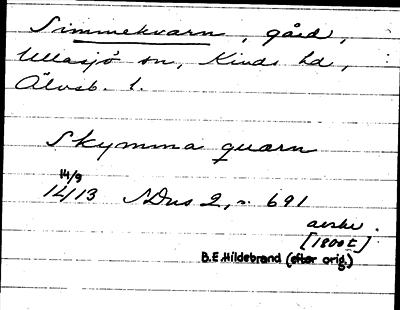 Simmekvarn, gård,
Ullasjö sn, Kinds hd,
Älvsb. l.
Skymma quarn
14/9
1413 SDns 2, n. 691
avskr.
[1800t]
B.E.Hildebrand (efter orig.)